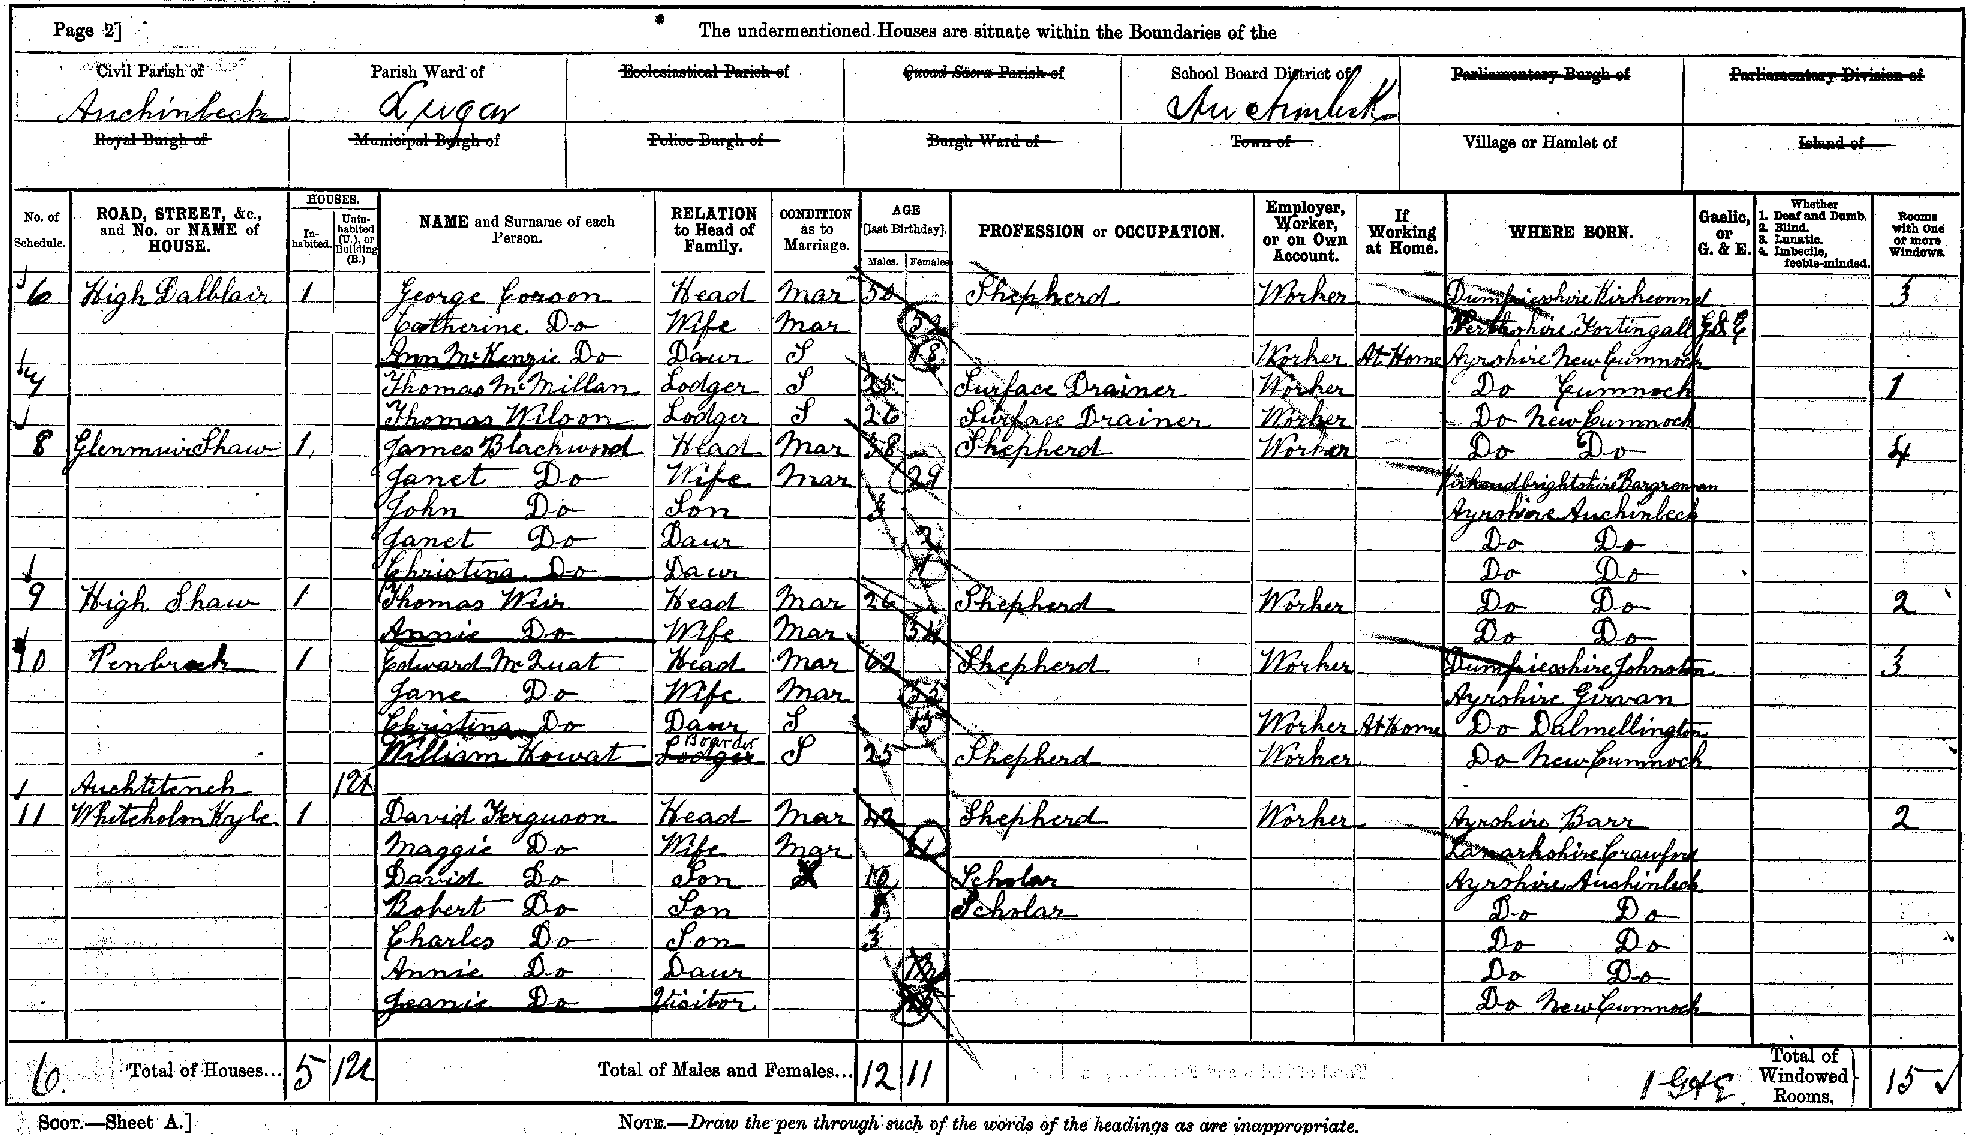 Page 2]
The undermentioned Houses are situate within the Boundaries of the
Civil Parish of Parish Ward of Ecclesiastical Parish of Quoad Sacra Parish of School Board District of Parliamentary Burgh of Parliamentary Division of
Auchinleck Lugar Auchinleck
Royal Burgh of Municipal Burgh of Police Burgh of Burgh Ward of Town of Village or Hamlet of Island of
No. of Schedule. ROAD, STREET, &c., and No. or NAME of HOUSE. HOUSES. Inhabited. Uninhabited (U.), or Building (B.) NAME and Surname of each Person. RELATION to Head of Family. CONDITION as to Marriage. AGE [last Birthday]. Males. Females. PROFESSION or OCCUPATION. Employer, Worker, or on Own Account. If Working at Home. WHERE BORN. Gaelic, or G. & E. Whether 1. Deaf and Dumb. 2. Blind. 3. Lunatic. 4. Imbecile, feeble-minded. Rooms with One or more Windows.
6 High Dalblair 1 George Corson Head Mar 50 Shepherd Worker Dumfriesshire Kirkconnel 3
Catherine Do Wife Mar Perthshire Fortingall G & E
Ann McKenzie Do Daur S 18 Worker At Home Ayrshire New Cumnock
7 Thomas McMillan Lodger S 25 Surface Drainer Worker Do Cumnock 1
Thomas Wilson Lodger S 26 Surface Drainer Worker Do New Cumnock
8 Glenmuir Shaw 1 James Blackwood Head Mar 38 Shepherd Worker Do Do 4
Janet Do Wife Mar 29 Kirkcudbrightshire
John Do Son 3 Ayrshire Auchinleck
Janet Do Daur 2 Do Do
Christina Do Daur Do Do
9 High Shaw 1 Thomas Weir Head Mar 26 Shepherd Worker Do Do 2
Annie Do Wife Mar 34 Do Do
10 Penbreck 1 Edward McQuat Head Mar 62 Shepherd Worker Dumfriesshire Johnston 3
Jane Do Wife Mar Ayrshire Girvan
Christina Do Daur S 15 Worker At Home Do Dalmellington
William Howat Lodger Boarder S 25 Shepherd Worker Do New Cumnock
Auchtitench 1U
11 Whiteholm Kyle 1 David Ferguson Head Mar 42 Shepherd Worker Ayrshire Barr 2
Maggie Do Wife Mar Lanarkshire Crawford
David Do Son 10 Scholar Ayrshire Auchinleck
Robert Do Son Scholar Do Do
Charles Do Son 3 Do Do
Annie Do Daur Do Do
Jeanie Do Visitor Do New Cumnock
6. Total of Houses... 5 1U Total of Males and Females... 12 11 1 G & E. Total of Windowed Rooms, 15
SCOT.—Sheet A.]
NOTE.—Draw the pen through such of the words of the headings as are inappropriate.